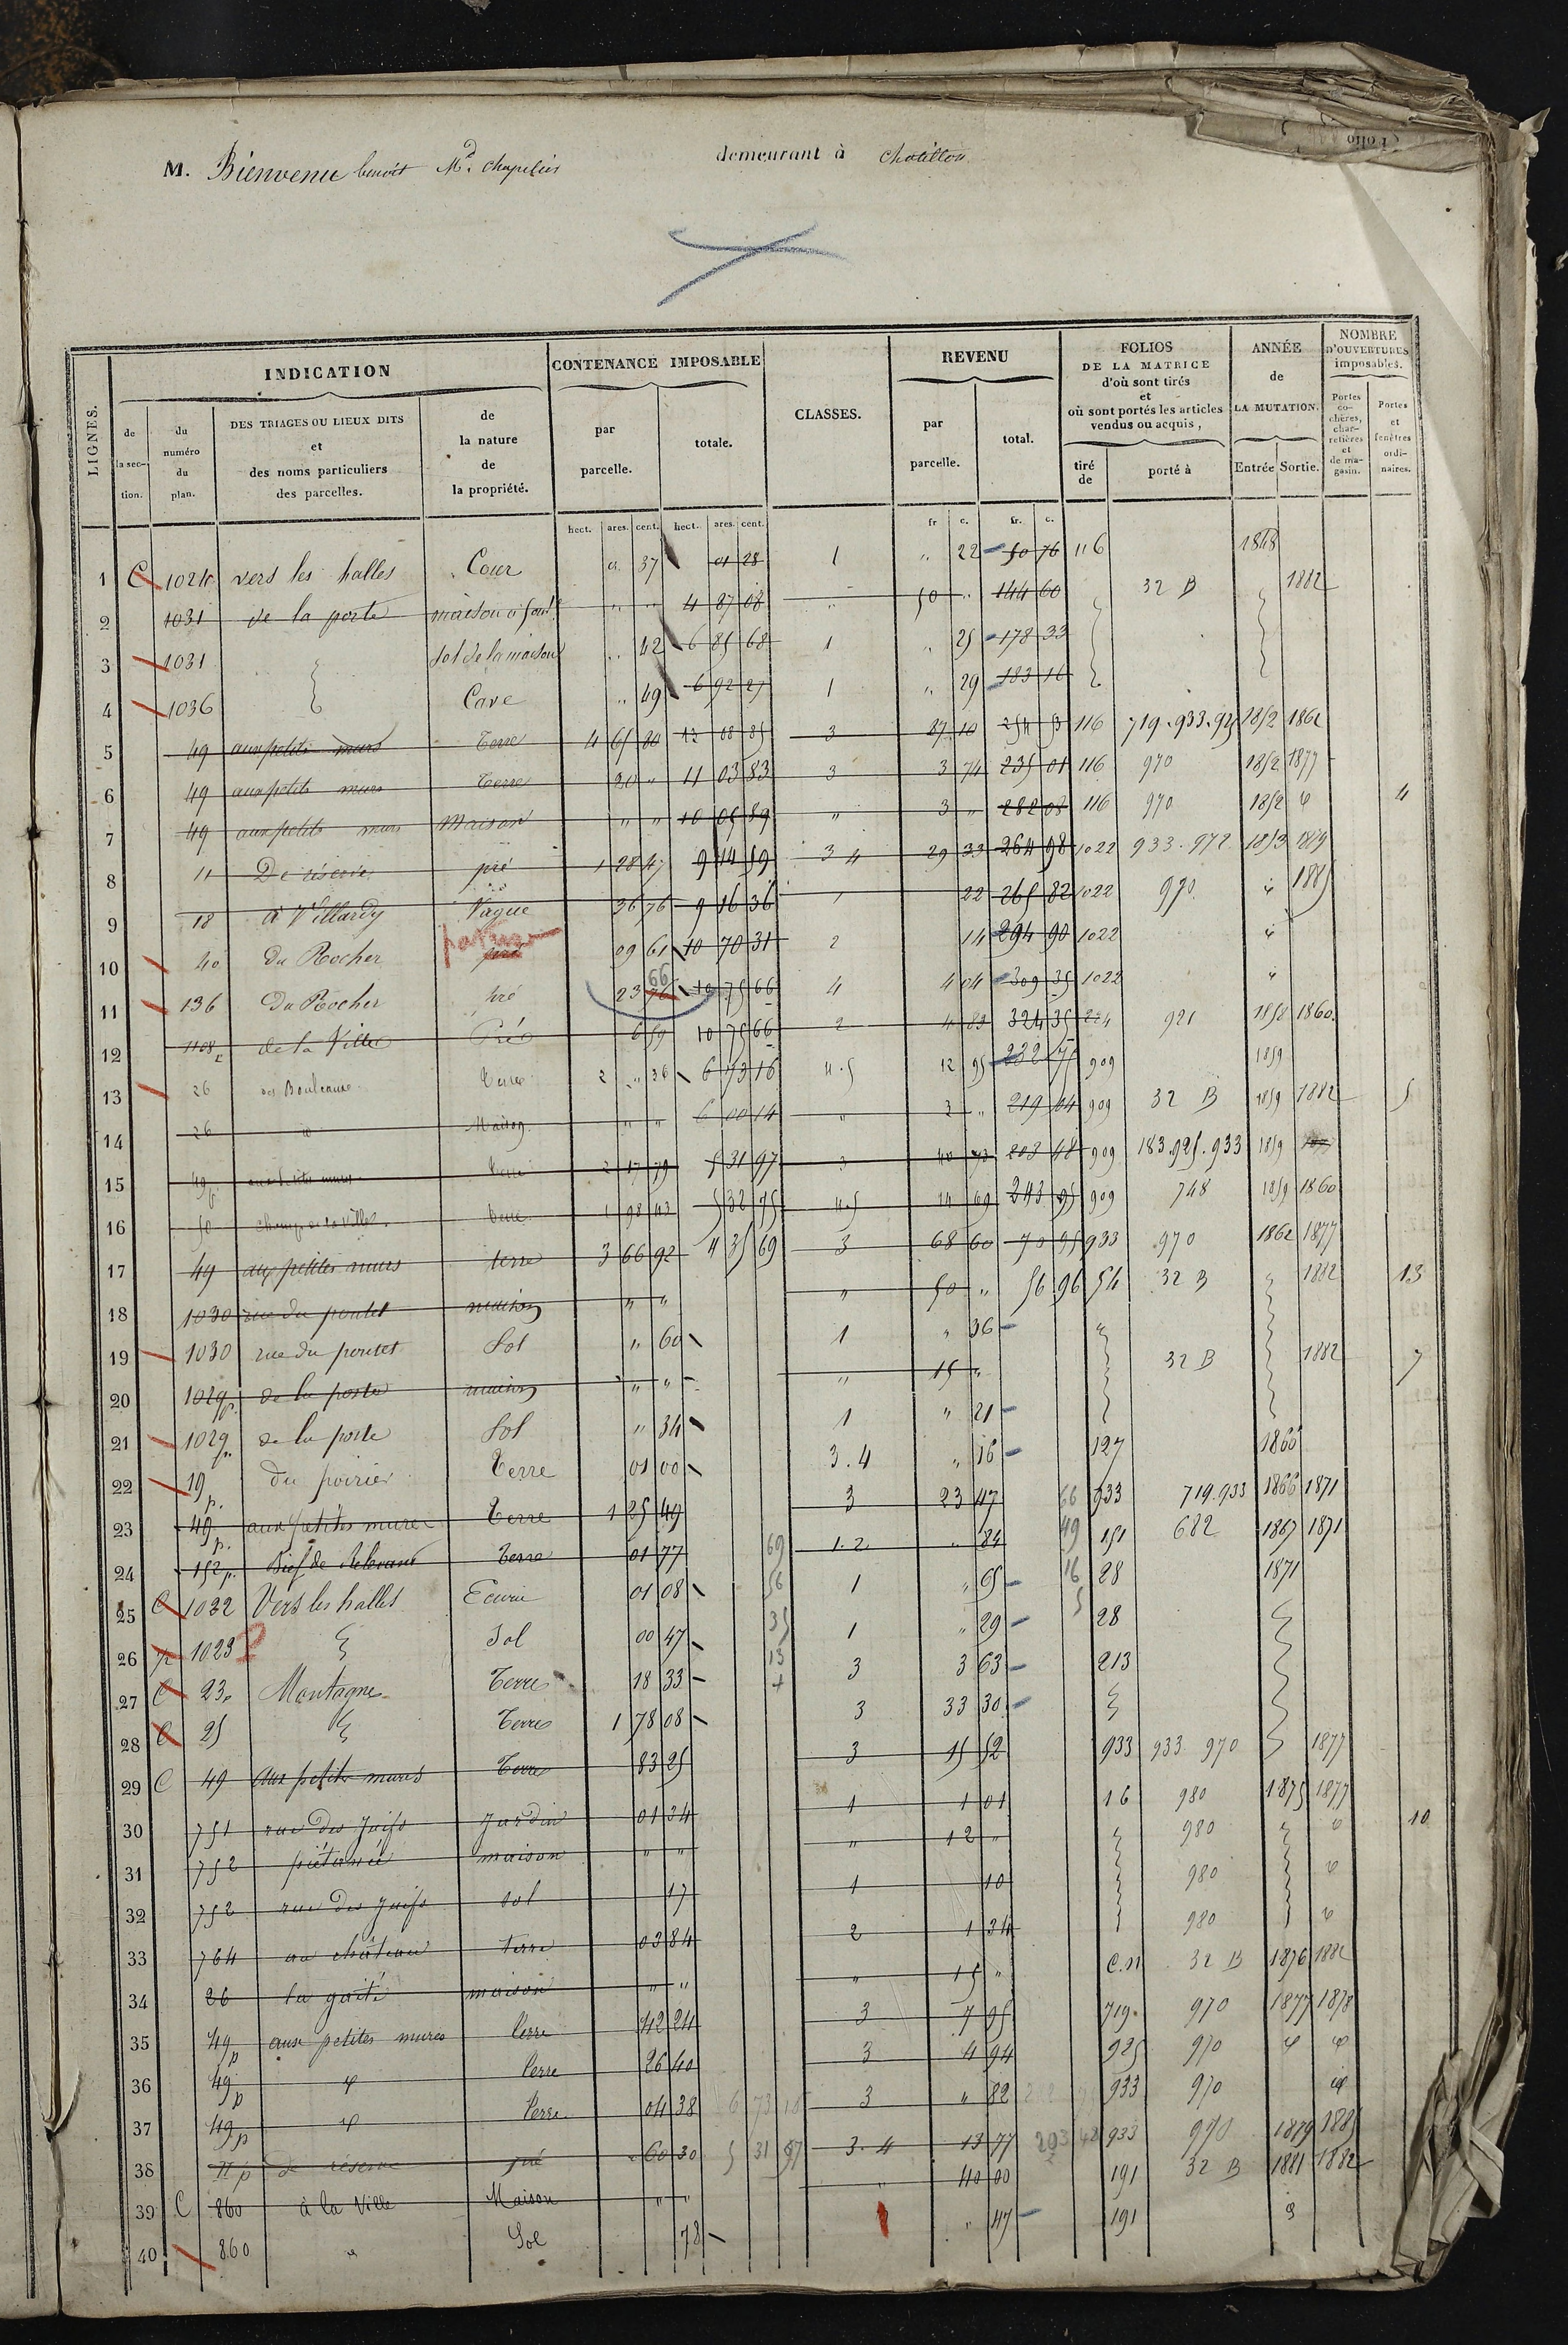 Folio
M. Bienvenu benoit Md. chapelier demeurant à chatillon
LIGNES. INDICATION CONTENANCE IMPOSABLE CLASSES. REVENU FOLIOS DE LA MATRICE d'où sont tirés et où sont portés les articles vendus ou acquis, ANNÉE de LA MUTATION. NOMBRE D'OUVERTURES imposables.
de la section. du numéro du plan. DES TRIAGES OU LIEUX DITS et des noms particuliers des parcelles. de la nature de la propriété. par parcelle. totale. par parcelle. total. tiré de porté à Entrée Sortie. Portes cochères, charretières et de magasin. Portes et fenêtres ordinaires.
hect. ares. cent. hect. ares. cent. fr c. fr. c.
1 C 1024 vers les halles Cour " 37 01 28 1 " 22 50 76 116 1848
2 1031 de la porte maison " " 4 87 08 " 50 " 144 60 32 B 1882
3 1031 sol de la maison " 42 6 85 68 1 " 25 178 33
4 1036 Cave " 49 6 92 27 1 " 29 183 16
5 49 aux petits murs Terre 4 65 80 12 08 85 3 87 10 254 53 116 719.933.925 1852 1862
6 49 aux petits murs Terre 20 " 11 03 83 3 3 74 235 01 116 970 1852 1877
7 49 aux petits murs Maison " " 10 05 89 " 3 " 282 08 116 970 1852 " 4
8 11 De réserve pré 1 28 47 9 14 59 3 4 29 33 264 98 1022 933.972 1853 1879
9 18 à Villardy Vague 36 76 9 16 36 1 22 265 82 1022 970 " 1885
10 40 du Rocher pré pature 09 61 10 70 31 2 14 294 90 1022 "
11 136 Du Rocher pré 23 76 66 10 75 66 4 4 04 309 35 1022 "
12 1108 de la Ville Pré 6 59 10 75 66 2 4 83 324 35 224 921 1858 1860
13 26 des Bouleaux Terre 2 " 36 6 73 16 4.5 12 95 232 75 909 1859
14 26 d Maison " " 6 00 14 " 3 " 219 04 909 32 B 1859 1882 5
15 49p aux petits murs Terre 2 17 79 5 31 97 3 40 73 203 48 909 183.925.933 1859
16 50 champ de la Ville Terre 1 98 43 5 32 75 4.5 14 69 243 95 909 748 1859 1860
17 49 aux petites mures terre 3 66 92 4 35 69 3 68 60 70 95 933 970 1862 1877
18 1030 rue du pontet maison " " " 50 " 56 96 54 32 B 1882 13
19 1030 rue du pontet Sol " 60 1 " 36
20 1029p. de la porte maison " " " 15 " 32 B 1882 7
21 1029p. de la porte Sol " 34 1 " 21
22 19p. du poirier Terre 01 00 3.4 " 16 127 1866
23 49p. aux petites mures Terre 1 25 49 3 23 47 66 933 719.933 1866 1871
24 152p. Terre 01 77 69 1.2 " 84 49 151 682 1867 1871
25 C 1032 Vers les halles Ecurie 01 08 56 1 " 65 16 28 1871
26 p 1023 Sol 00 47 35 1 " 29 5 28
27 C 23p Montagne Terres 18 33 13 3 3 63 213
28 C 25 Terres 1 78 08 3 33 30
29 C 49 Aux petites mures Terres 83 25 3 15 52 933 933 970 1877
30 751 rue des Juifs Jardin 01 34 1 1 01 16 980 1875 1877
31 752 maison " " " 12 " 980 " 10
32 752 rue des Juifs sol 17 1 10 980 "
33 764 au château terre 03 84 2 1 34 980 "
34 26 la gaité maison " " " 15 " C.N 32 B 1876 1882
35 49p aux petites mures terre 42 24 3 7 95 719 970 1877 1878
36 49p " terre 26 40 3 4 94 925 970 " "
37 49p " terre 04 38 6 73 16 3 " 82 933 970 "
38 11p de réserve pré 60 30 5 31 97 3.4 13 77 203 48 933 970 1879 1885
39 C 860 à la Ville Maison " " " 40 00 191 32 B 1881 1882
40 860 " Sol 78 1 " 47 191 "